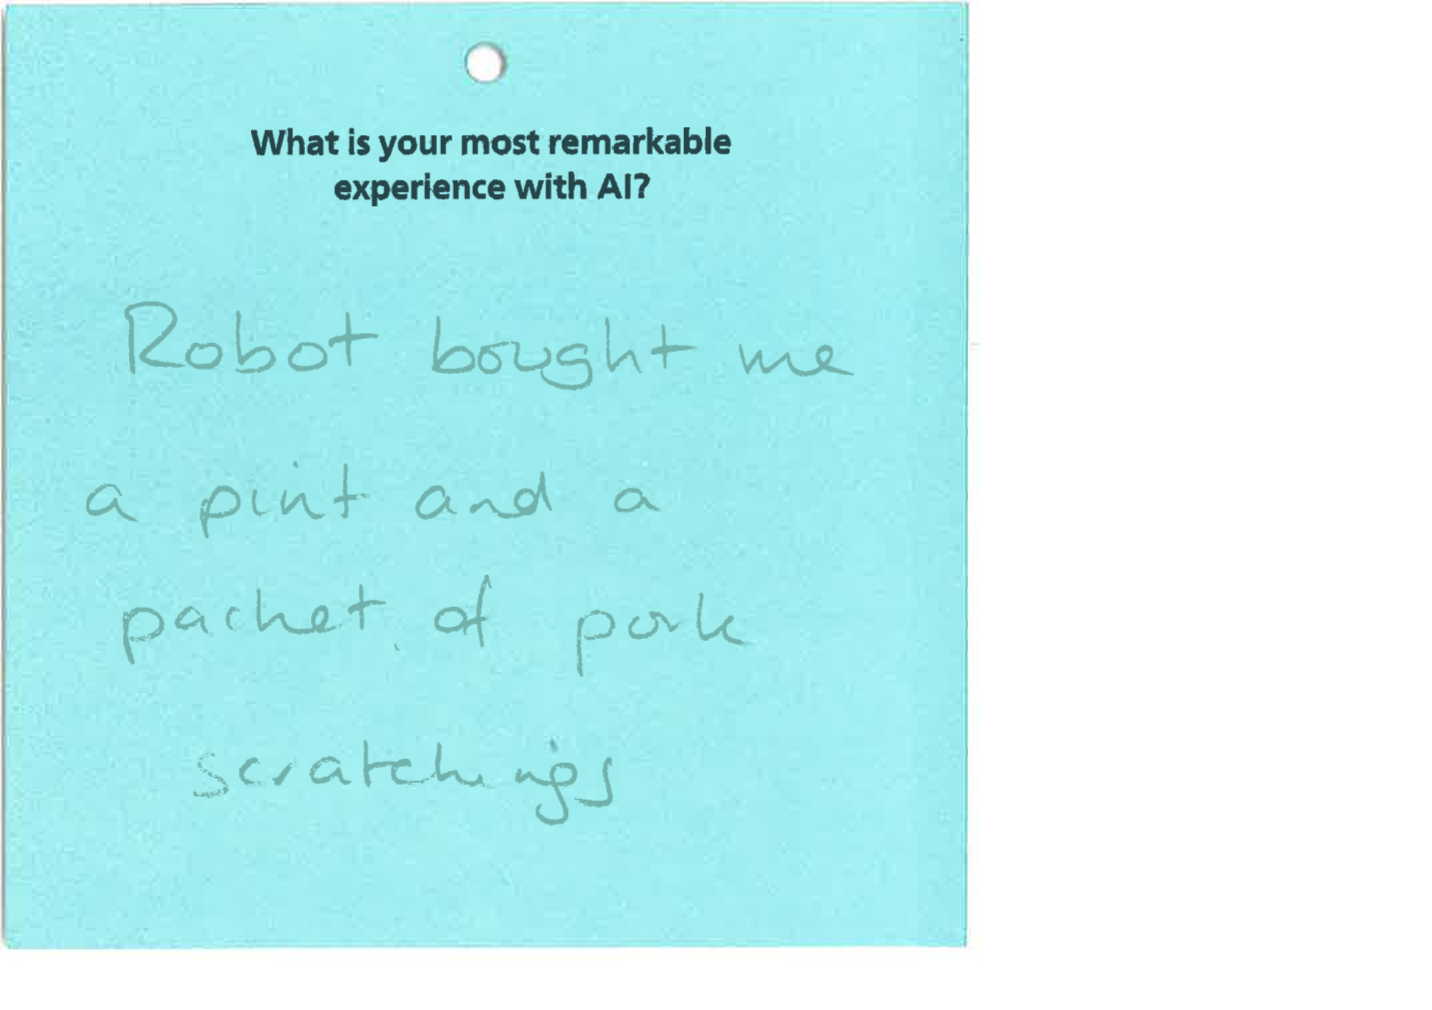 What is your most remarkable
experience with AI?
Robot bought me
a pint and a
packet of pork
scratchings